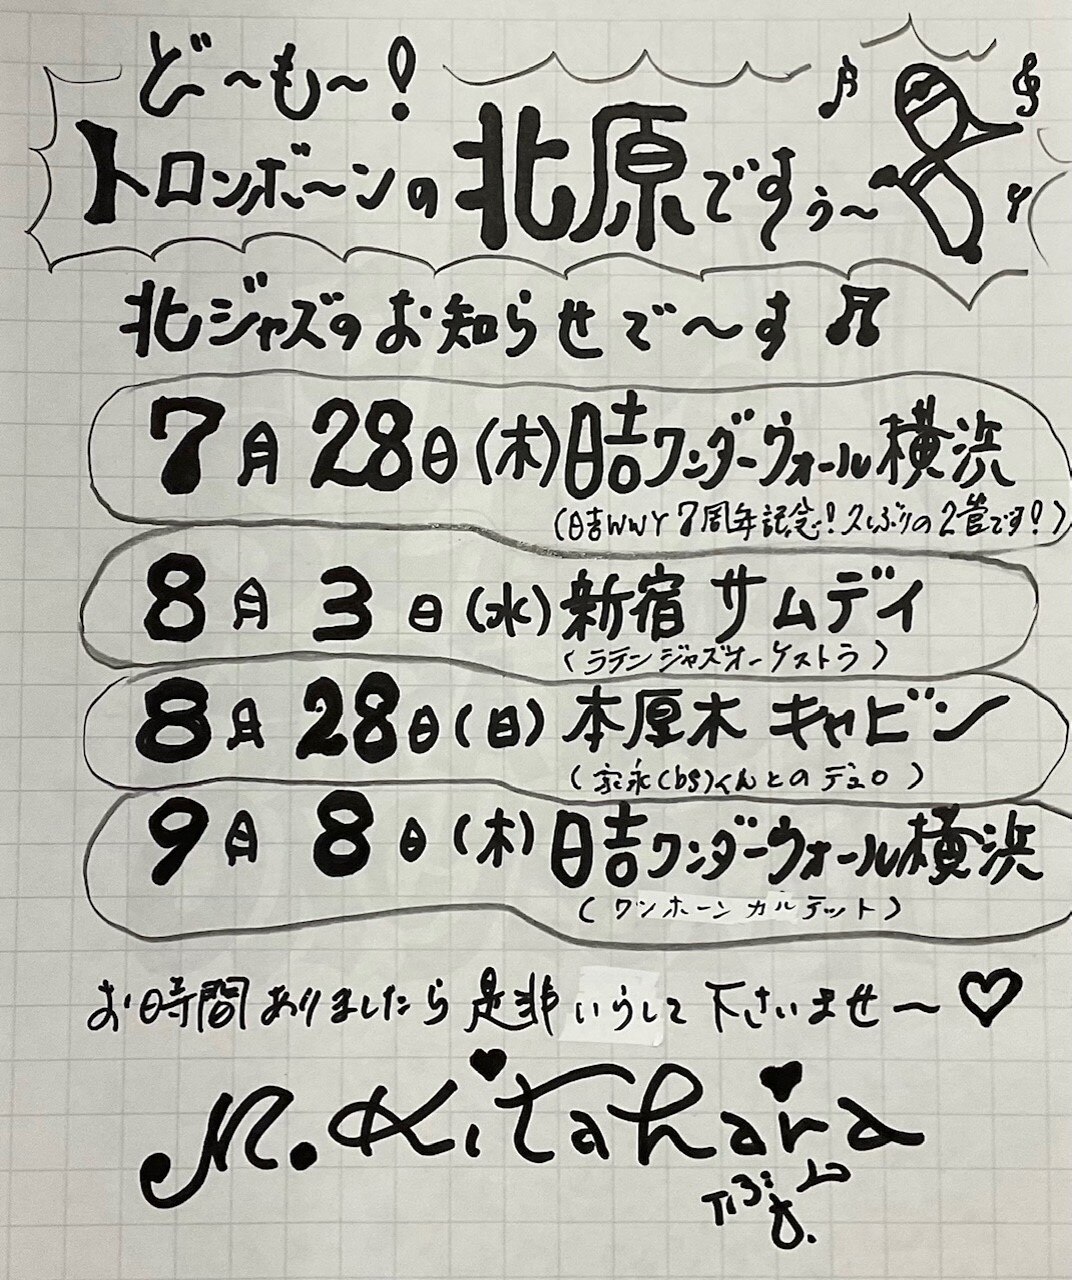 ど〜も〜!
トロンボ〜ンの北原ですぅ〜
北ジャズのお知らせで〜す♬
7月28日(木)日吉ワンダーウォール横浜
(日吉WWY7周年記念!久しぶりの2管です!)
8月3日(水)新宿サムデイ
(ラテンジャズオーケストラ)
8月28日(日)本厚木キャビン
(家永(bs)くんとのデュオ)
9月8日(木)日吉ワンダーウォール横浜
(ワンホーンカルテット)
お時間ありましたら是非いらして下さいませ〜♡
M.Kitahara